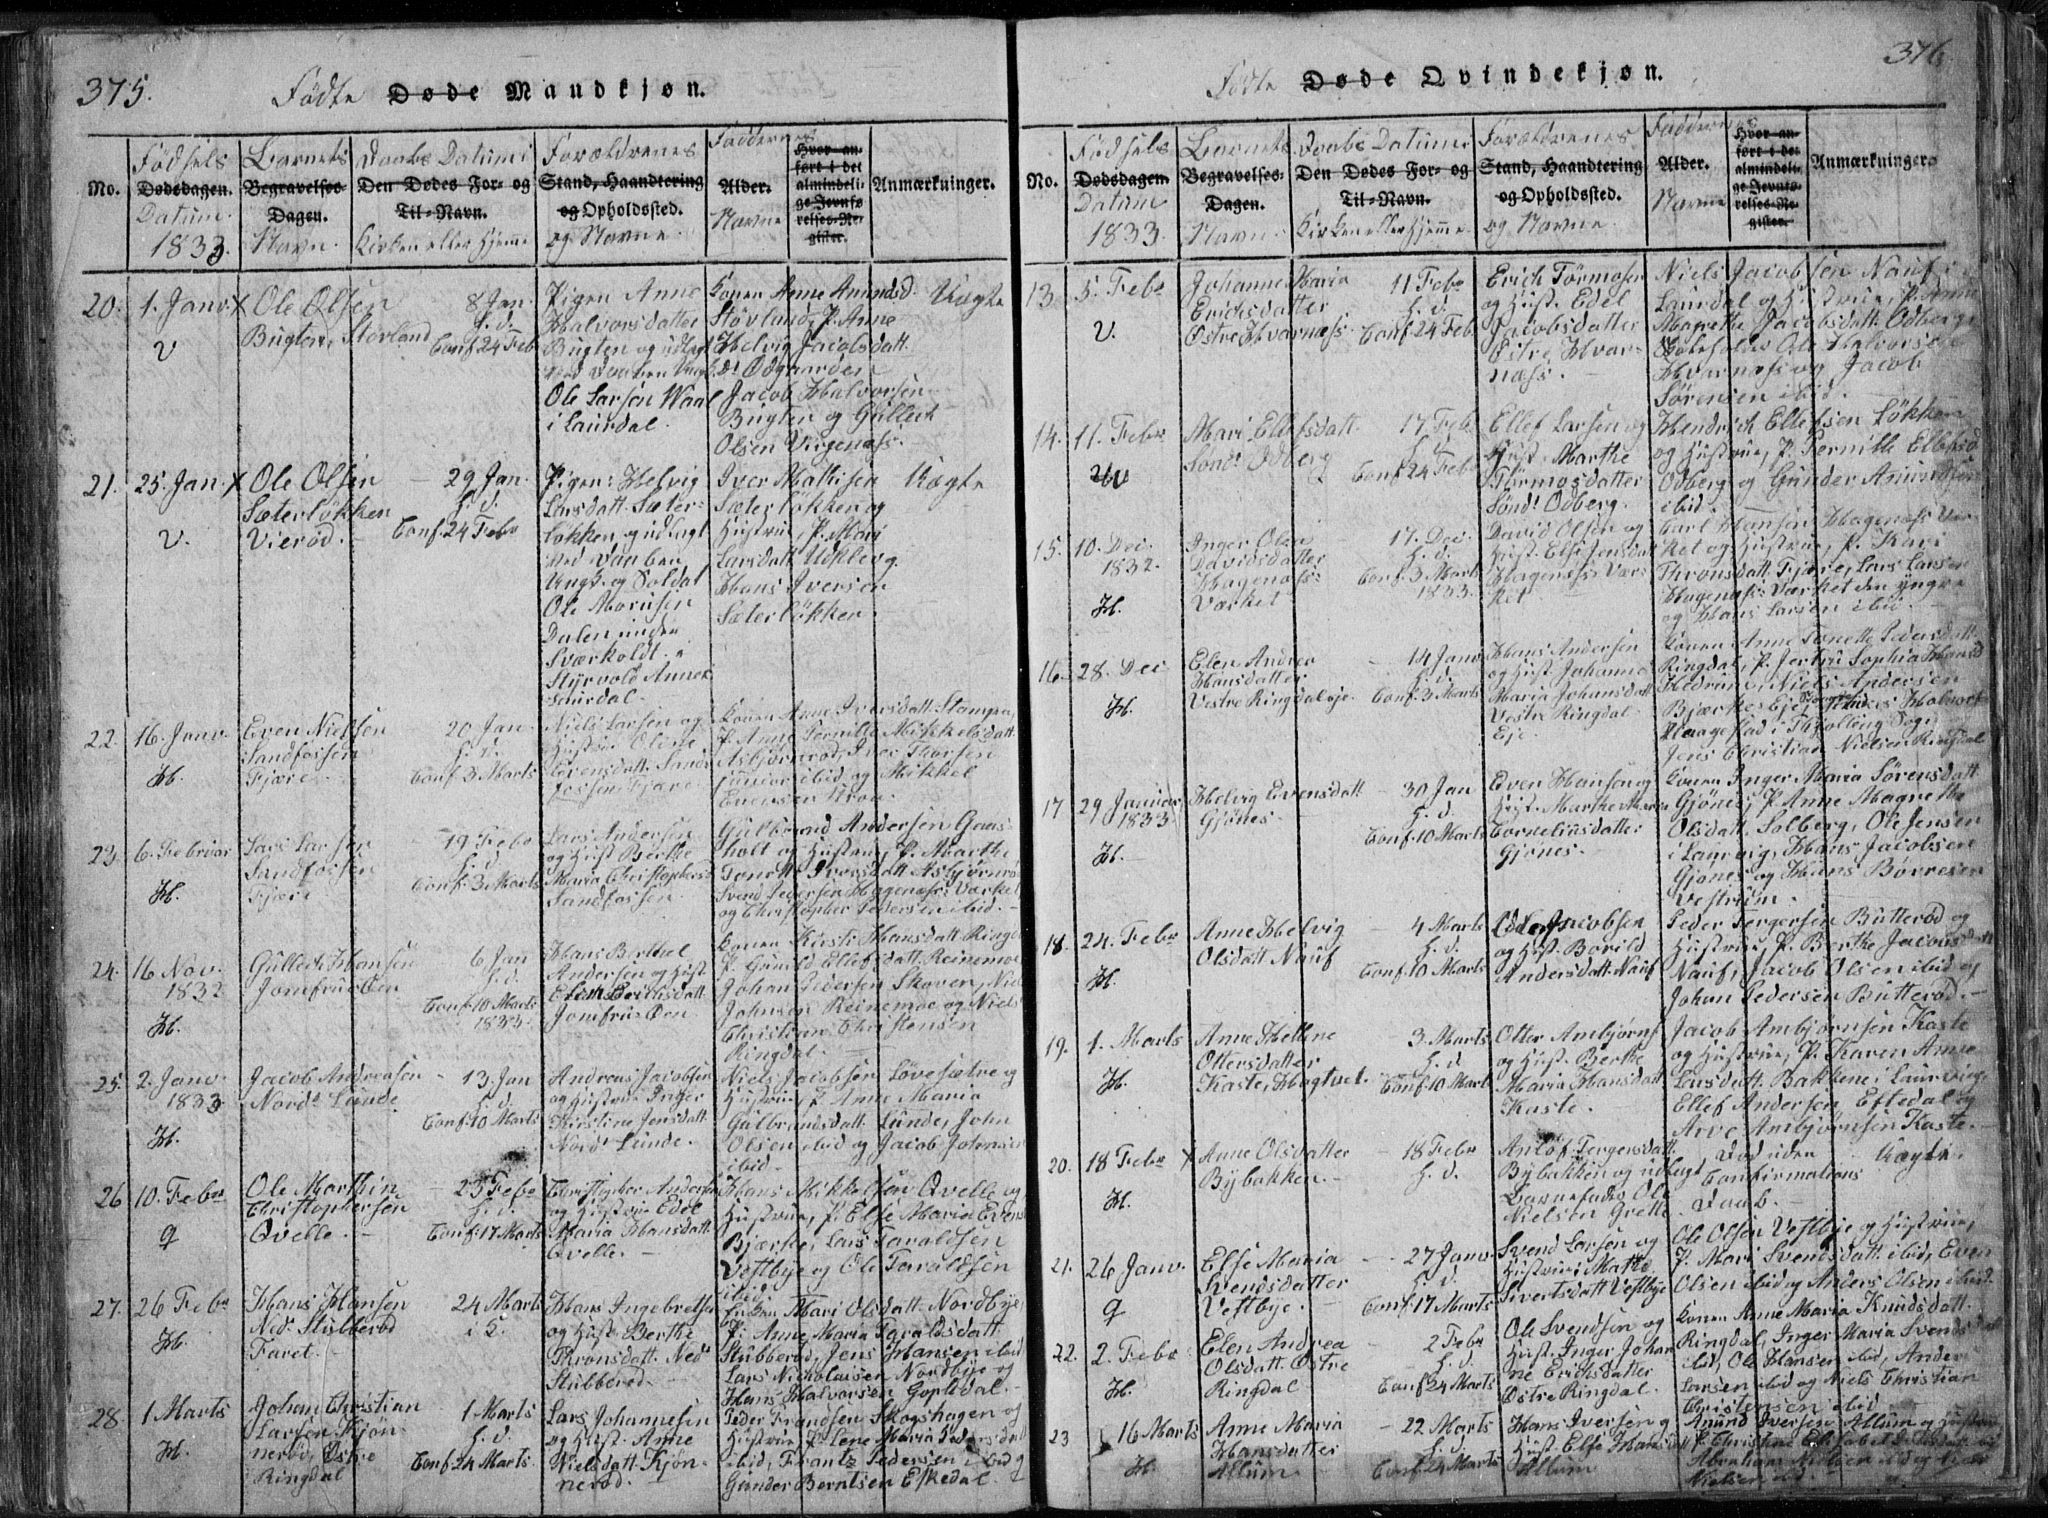 375.
Födte Døde Mandkjøn.
No.
Födsels
Dødsdagen.
Datum.
1833.
Barnets
Begravelses-
Dagen.
Navn.
Daabs Datum i
Den Dødes For- og
Til-Navn.
Kirken eller Hjemme
Forældrenes
Stand, Haandtering
og Opholdssted.
og Navne.
Faddernes
Alder.
Navne
Hvor an-
ført i det
almindeli-
ge Jevnfø-
relses-Re-
gister.
Anmærkninger.
20. 1. Janv. x
V
Ole Olsen
Bugten, Storland
8 Jan.
h. d.
Conf. 24 Feb
Pigen Anne
Halvorsdatter
Bugten og udlagt
Ole Larsen Waal
i Laurdal.
Konen Anne Amundsd.
Støvland, P. Anne
Helvig Jacobsdatt.
Odgaarden
Jacob Halvorsen
Bugten og Gullech
Olsen Virgenæss.
Uægte
21. 25. Jan. x
V.
Ole Olsen
Sæterløkken
Vierød.
29 Jan.
h. d.
Conf. 24 Febr
Pigen: Helvig
Larsdatt. Sæter-
løkken og udlagt
ved Daaben
Ungk. og Soldat
Ole Morusen
Dalen under
Sværholdt
Styrvold Annex
Laurdal.
Iver Mathisen
Sæterløkken og
Hustrue, P. Mari
Larsdatt. Udklev og
Hans Iversen
Sæterløkken.
Uægte
22. 16. Janv.
H.
Even Nielsen
Sandfossen
Fjære.
20 Jan.
h. d.
Conf. 3 Marts
Niels Larsen og
Hustrue Oline
Sörensdatt. Sand-
fossen Fjære.
Konen Anne Iversdatt. Stampa,
P. Anne Pernille Mikkelsdatt.
Asbjørnrød, Iver Thorsen
junior ibid og Mikkel
Evensen Kroa.
23. 6. Februar
H.
Lars Larsen
Sandfossen
Fjære
19 Febr
h. d.
Conf. 3 Marts
Lars Andersen
og Hust. Berthe
Maria Christophersd
Sandfossen.
Gulbrand Andersen Gaas-
holt og Hustrue, P. Marthe
Tonette Iversdatt. Asbjørnrød
Svend Pedersen Hagenæss: Værket
og Christopher Pedersen ibid.
24. 16 Nov.
1832
H.
Gullech Hansen
Jomfruöen
6 Jan
h. d.
Conf. 10 Marts
1833.
Hans Berthel
Andersen og Hust
Elen Erichsdatt.
Jomfru-Öen
Konen Kirsti Hansdatt. Ringd
P. Gunild Ellefsdatt. Reinemoe
Johan Pedersen Skoven, Niels
Johnsen Reinemoe og Niels
Christian Christensen
Ringdal.
25. 2. Janv.
1833
H.
Jacob Andreasen
Nordr Lunde
13 Jan
h. d.
Conf. 10 Marts
Andreas Jacobsen
og Hustrue Inger
Kirstine Jensdatt.
Nordr Lunde.
Niels Jacobsen Lövesætre og
Hustrue, P. Anne Maria
Gulbrandsdatt. Lunde, John
Olsen ibid og Jacob Johansen
ibid.
26 10. Febr
q
Ole Marthin
Christophersen
Qvelle.
23 Febr
h. d.
Conf. 17 Marts
Christopher Andersen
og Hustrue Edel
Maria Hansdatt.
Qvelle.
Hans Mikkelsen Qvelle og
Hustrue, P. Else Maria Evens
Bjærke, Lars Taraldsen
Vestbye og Ole Taraldsen
ibid.
27. 26 Febr
H.
Hans Hansen
Nedr Stubberød
Faret.
24 Marts
i K.
Hans Ingebretsen
og Hust. Berthe
Thronsdatt. Nedr
Stubberød.
Konen Mari Olsdatt. Nordbye,
P. Anne Maria Taraldsdatt.
Stubberød, Jens Hansen ibid
Lars Nicholaisen Nordbye og
Hans Halvorsen Gopledal.
28. 1 Marts
H.
Johan Christian
Larsen Kjön-
nerød, Östre
Ringdal
1 Marts
h. d.
Conf. 24 Marts
Lars Johannesen
og Hust. Anne
Nielsdatt. Kjön-
nerød.
Peder Frandsen Skogshagen og
Hustrue, P. Lene Maria Pedersdatt
ibid, Frantz Pedersen ibid og
Gunder Berntsen Eskedal
376
Födte Døde Qvindekjøn.
No.
Födsels
Dødsdagen.
Datum
1833.
Barnets
Begravelses-
Dagen.
Navn.
Daabs Datum i
Den Dødes For- og
Til-Navn.
Kirken eller Hjemme
Forældrenes
Stand, Haandtering
og Opholdssted.
og Navne.
Faddernes
Alder.
Navne
Hvor an-
ført i det
almindeli-
ge Jevnfø-
relses-Re-
gister.
Anmærkninger
13 5. Febr
V.
Johanne Maria
Erichsdatter
Östre Hvarnæss
11 Febr
Conf 24 Feb
Erich Tørmosen
og Hust. Edel
Jacobsdatter
Östre Hvar-
næss.
Niels Jacobsen Nauf i
Laurdal og Hustrue, P. Anne
Magrethe Jacobsdatt. Odberg,
Ole Halvorsen
Hvarnæss og Jacob
Sörensen ibid.
14. 11. Febr
V
Mari Ellefsdatt.
Söndr Odberg
17 Feb
h. d.
Conf 24 Feb
Ellef Larsen og
Hust. Marthe
Tørmosdatter
Söndr Odberg.
Hendrich Ellefsen Løkken
og Hustrue, P. Pernille Ellefsd
Odberg og Gunder Amundsen
ibid.
15. 10. Dec.
1832.
H.
Inger Olea
Davidsdatter
Hagenæss:
Værket
17. Dec.
h. d.
Conf. 3 Marts
1833.
David Olsen og
Hust. Else Jensdat
Hagenæss: Vær-
ket.
Carl Hansen Hagenæss Vær-
ket og Hustrue, P. Kari
Thronsdatt. Fjære, Lars Larsen
Hagenæss: Værket den yngre
og Hans Larsen ibid.
16. 28. Dec
H.
Elen Andrea
Hansdatter
Vestre Ringdaleje
14 Janv
h. d.
Conf. 3 Marts
Hans Andersen
og Hust. Johanne
Maria Johansdatt
Vestre Ringdal-
Eje.
Konen Anne Tonette Pedersdatt.
Ringdal, P. Jertru Sophia Hansd
Hedrum, Niels Andersen
Bjærke Eje, Halvors
Haagestad i Thjølling Sogn
Jens Christian Nielsen Ringdal
17 29 Januar
1833.
H.
Helvig Evensdatt
Gjönes.
30 Jan
h. d.
Conf. 10 Marts
Even Hansen og
Hust. Marthe Maria
Corneliusdatter
Gjönes.
Konen Inger Maria Sörensdatt.
Gjönes, P. Anne Magrethe
Olsdatt. Solberg, Ole Jensen
i Laurvig, Hans Jacobsen
Gjönes og Hans Børresen
Vestrum.
18. 24. Febr
H.
Anne Helvig
Olsdatt. Nauf
4 Marts
h. d.
Conf. 10 Marts
Ole Jacobsen
og Hust. Borild
Andersdatt. Nauf
Peder Tergersen Butterød og
Hustrue P. Berthe Jacobsdatt
Nauf, Jacob Olsen ibid og
Johan Pedersen Butterød.
19. 1. Marts
H.
Anne Helene
Ottersdatter
Kaste, Hogtvet
3. Marts
h. d.
Conf. 10 Marts
Otter Ambjörns
og Hust. Berthe
Maria Hansdatt
Kaste.
Jacob Ambjörnsen Kaste
og Hustrue, P. Karen Anne
Larsdatt. Bakkene i Laurvig,
Ellef Andersen Eftedal og
Arve Ambjörnsen Kaste.
20. 18 Febr x
H.
Anne Olsdatter
Bybakken.
18 Febr
h. d.
Anlöf Tergersdatt.
Bybakken og udlagt
Barnefader Ole
Nielsen Grette.
Död uden
Confirmations
Daab.
Uægte
21. 26 Janv.
q
Else Maria
Svendsdatter
Vestbye.
27 Janv
h. d.
Conf. 17 Marts
Svend Larsen og
Hustrue Mathe
Sivertsdatt Vestbye
Ole Olsen Vestbye og Hustrue,
P. Mari Svendsdatt. ibid, Even
Olsen ibid og Anders Olsen ibid.
22. 2. Febr
H.
Elen Andrea
Olsdatt. Östre
Ringdal
2 Febr
h. d.
Conf. 24 Marts
Ole Svendsen og
Hust. Inger Johan
ne Erichsdatter
Östre Ringdal.
Konen Anne Maria Knudsdatt.
Ringdal, Inger Maria Svends
ibid, Ole Hansen ibid, Anders
Larsen ibid og Niels Christian
Christensen ibid
23 16 Marts
H.
Anne Maria
Hansdatter
Allum
22 Marts
h. d.
Conf. 24 Marts
Hans Iversen og
Hust. Else Hansd
Allum
Amund Iversen Allum og Hustrue
P. Christine Elisabeth
Abraham Nielsen ibid og
Nielsen ibid.